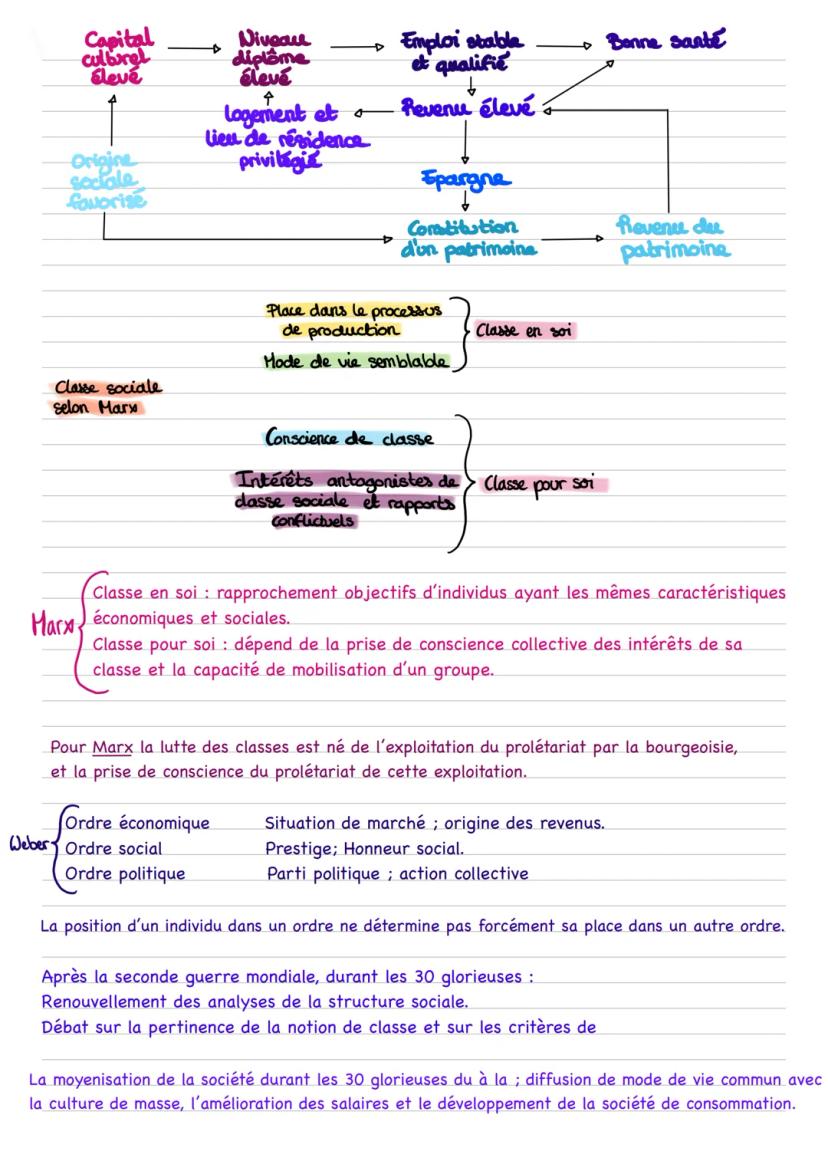 Capital
culturel
élevé
Niveau
diplôme
élevé
Emploi stable
et qualifié
Bonne santé
Logement et
lieu de résidence
privilégié
Revenu élevé
Origine
sociale
favorisé
Epargne
Constitution
d'un patrimoine
Revenu du
patrimoine
Place dans le processus
de production
Mode de vie semblable
Classe en soi
Classe sociale
selon Marx
Conscience de classe
Intérêts antagonistes de
classe sociale et rapports
conflictuels
Classe pour soi
Marx
Classe en soi : rapprochement objectifs d'individus ayant les mêmes caractéristiques
économiques et sociales.
Classe pour soi : dépend de la prise de conscience collective des intérêts de sa
classe et la capacité de mobilisation d'un groupe.
Pour Marx la lutte des classes est né de l'exploitation du prolétariat par la bourgeoisie,
et la prise de conscience du prolétariat de cette exploitation.
Weber
Ordre économique Situation de marché ; origine des revenus.
Ordre social Prestige; Honneur social.
Ordre politique Parti politique ; action collective
La position d'un individu dans un ordre ne détermine pas forcément sa place dans un autre ordre.
Après la seconde guerre mondiale, durant les 30 glorieuses :
Renouvellement des analyses de la structure sociale.
Débat sur la pertinence de la notion de classe et sur les critères de
La moyenisation de la société durant les 30 glorieuses du à la ; diffusion de mode de vie commun avec
la culture de masse, l'amélioration des salaires et le développement de la société de consommation.